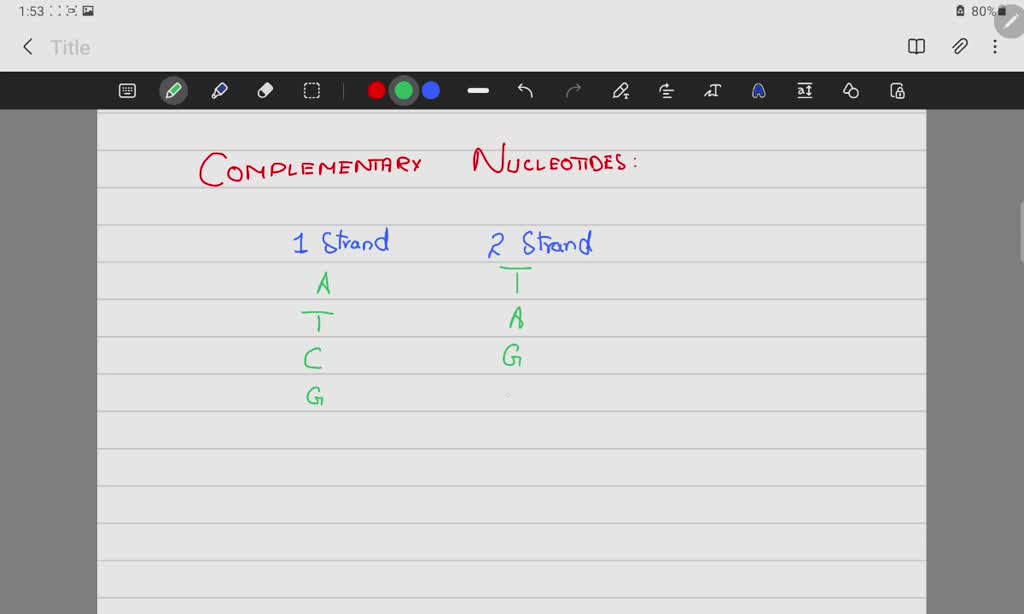 1:53 80%
Title
COMPLEMENTARY NUCLEOTIDES:
1 Strand 2 Strand
A T
T A
C G
G